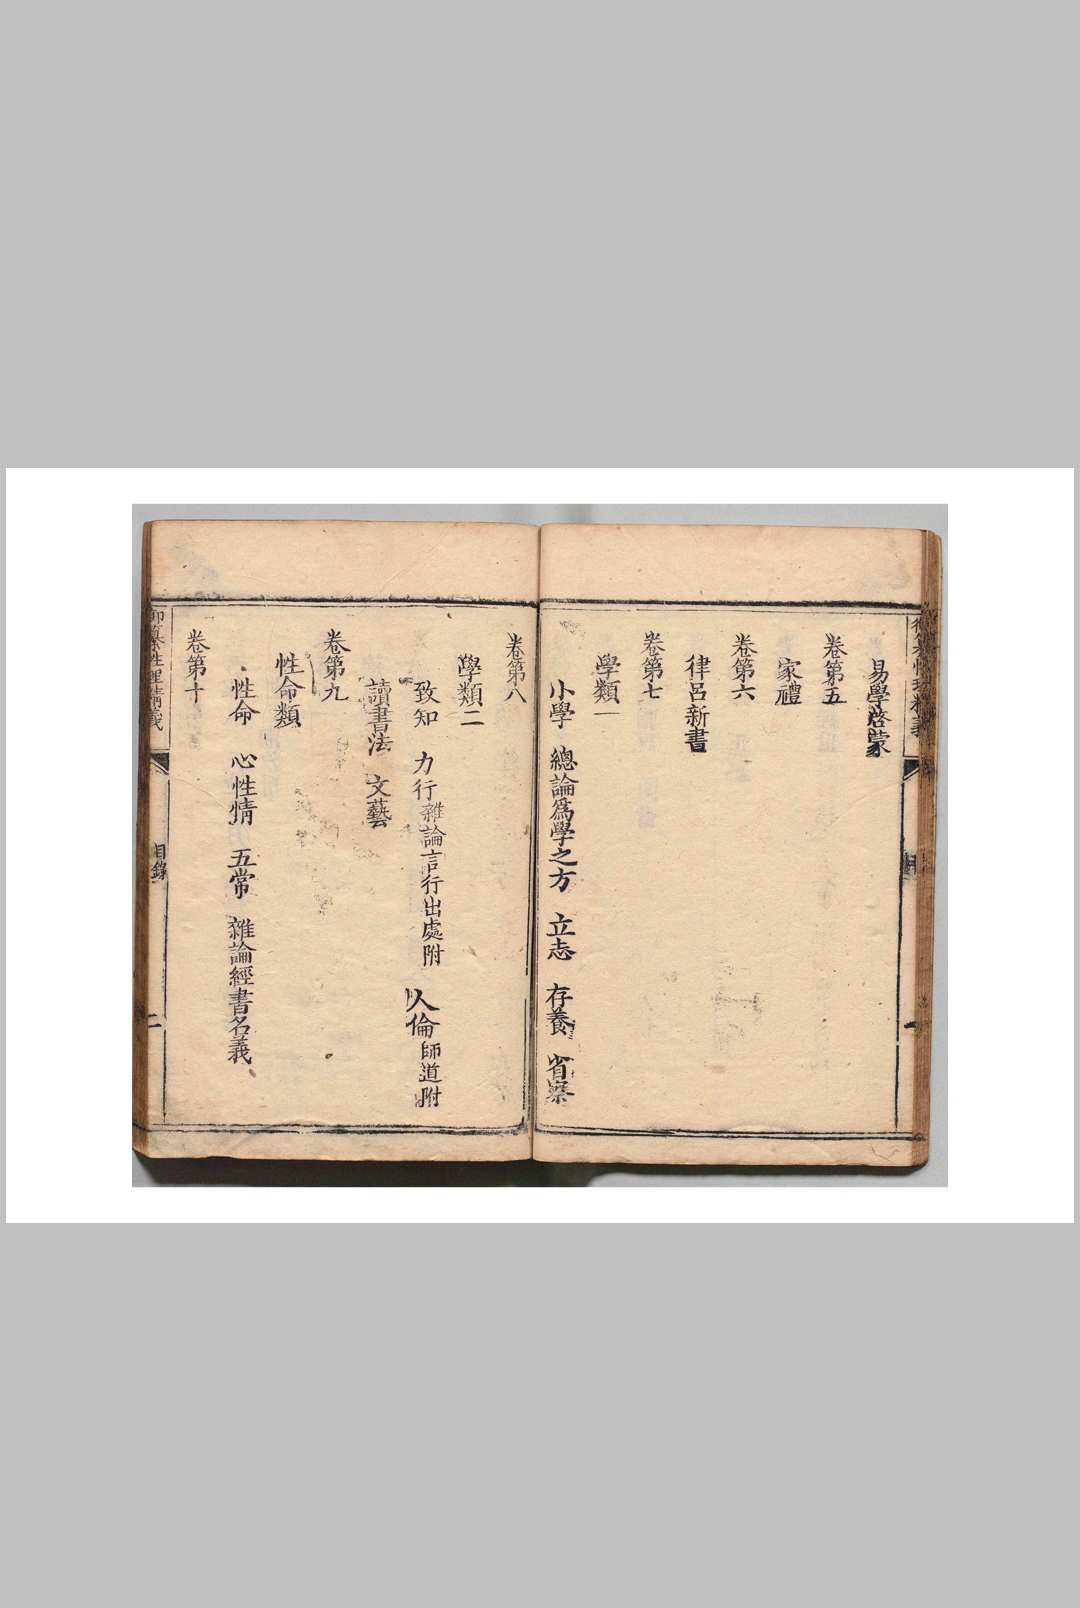 易學啓蒙
卷第五
家禮
卷第六
律呂新書
卷第七
學類一
小學 總論爲學之方 立志 存養 省察
卷第八
學類二
致知 力行雜論言行出處附 人倫師道附
讀書法 文藝
卷第九
性命類
性命 心性情 五常 雜論經書名義
卷第十
御纂性理精義
目錄
二